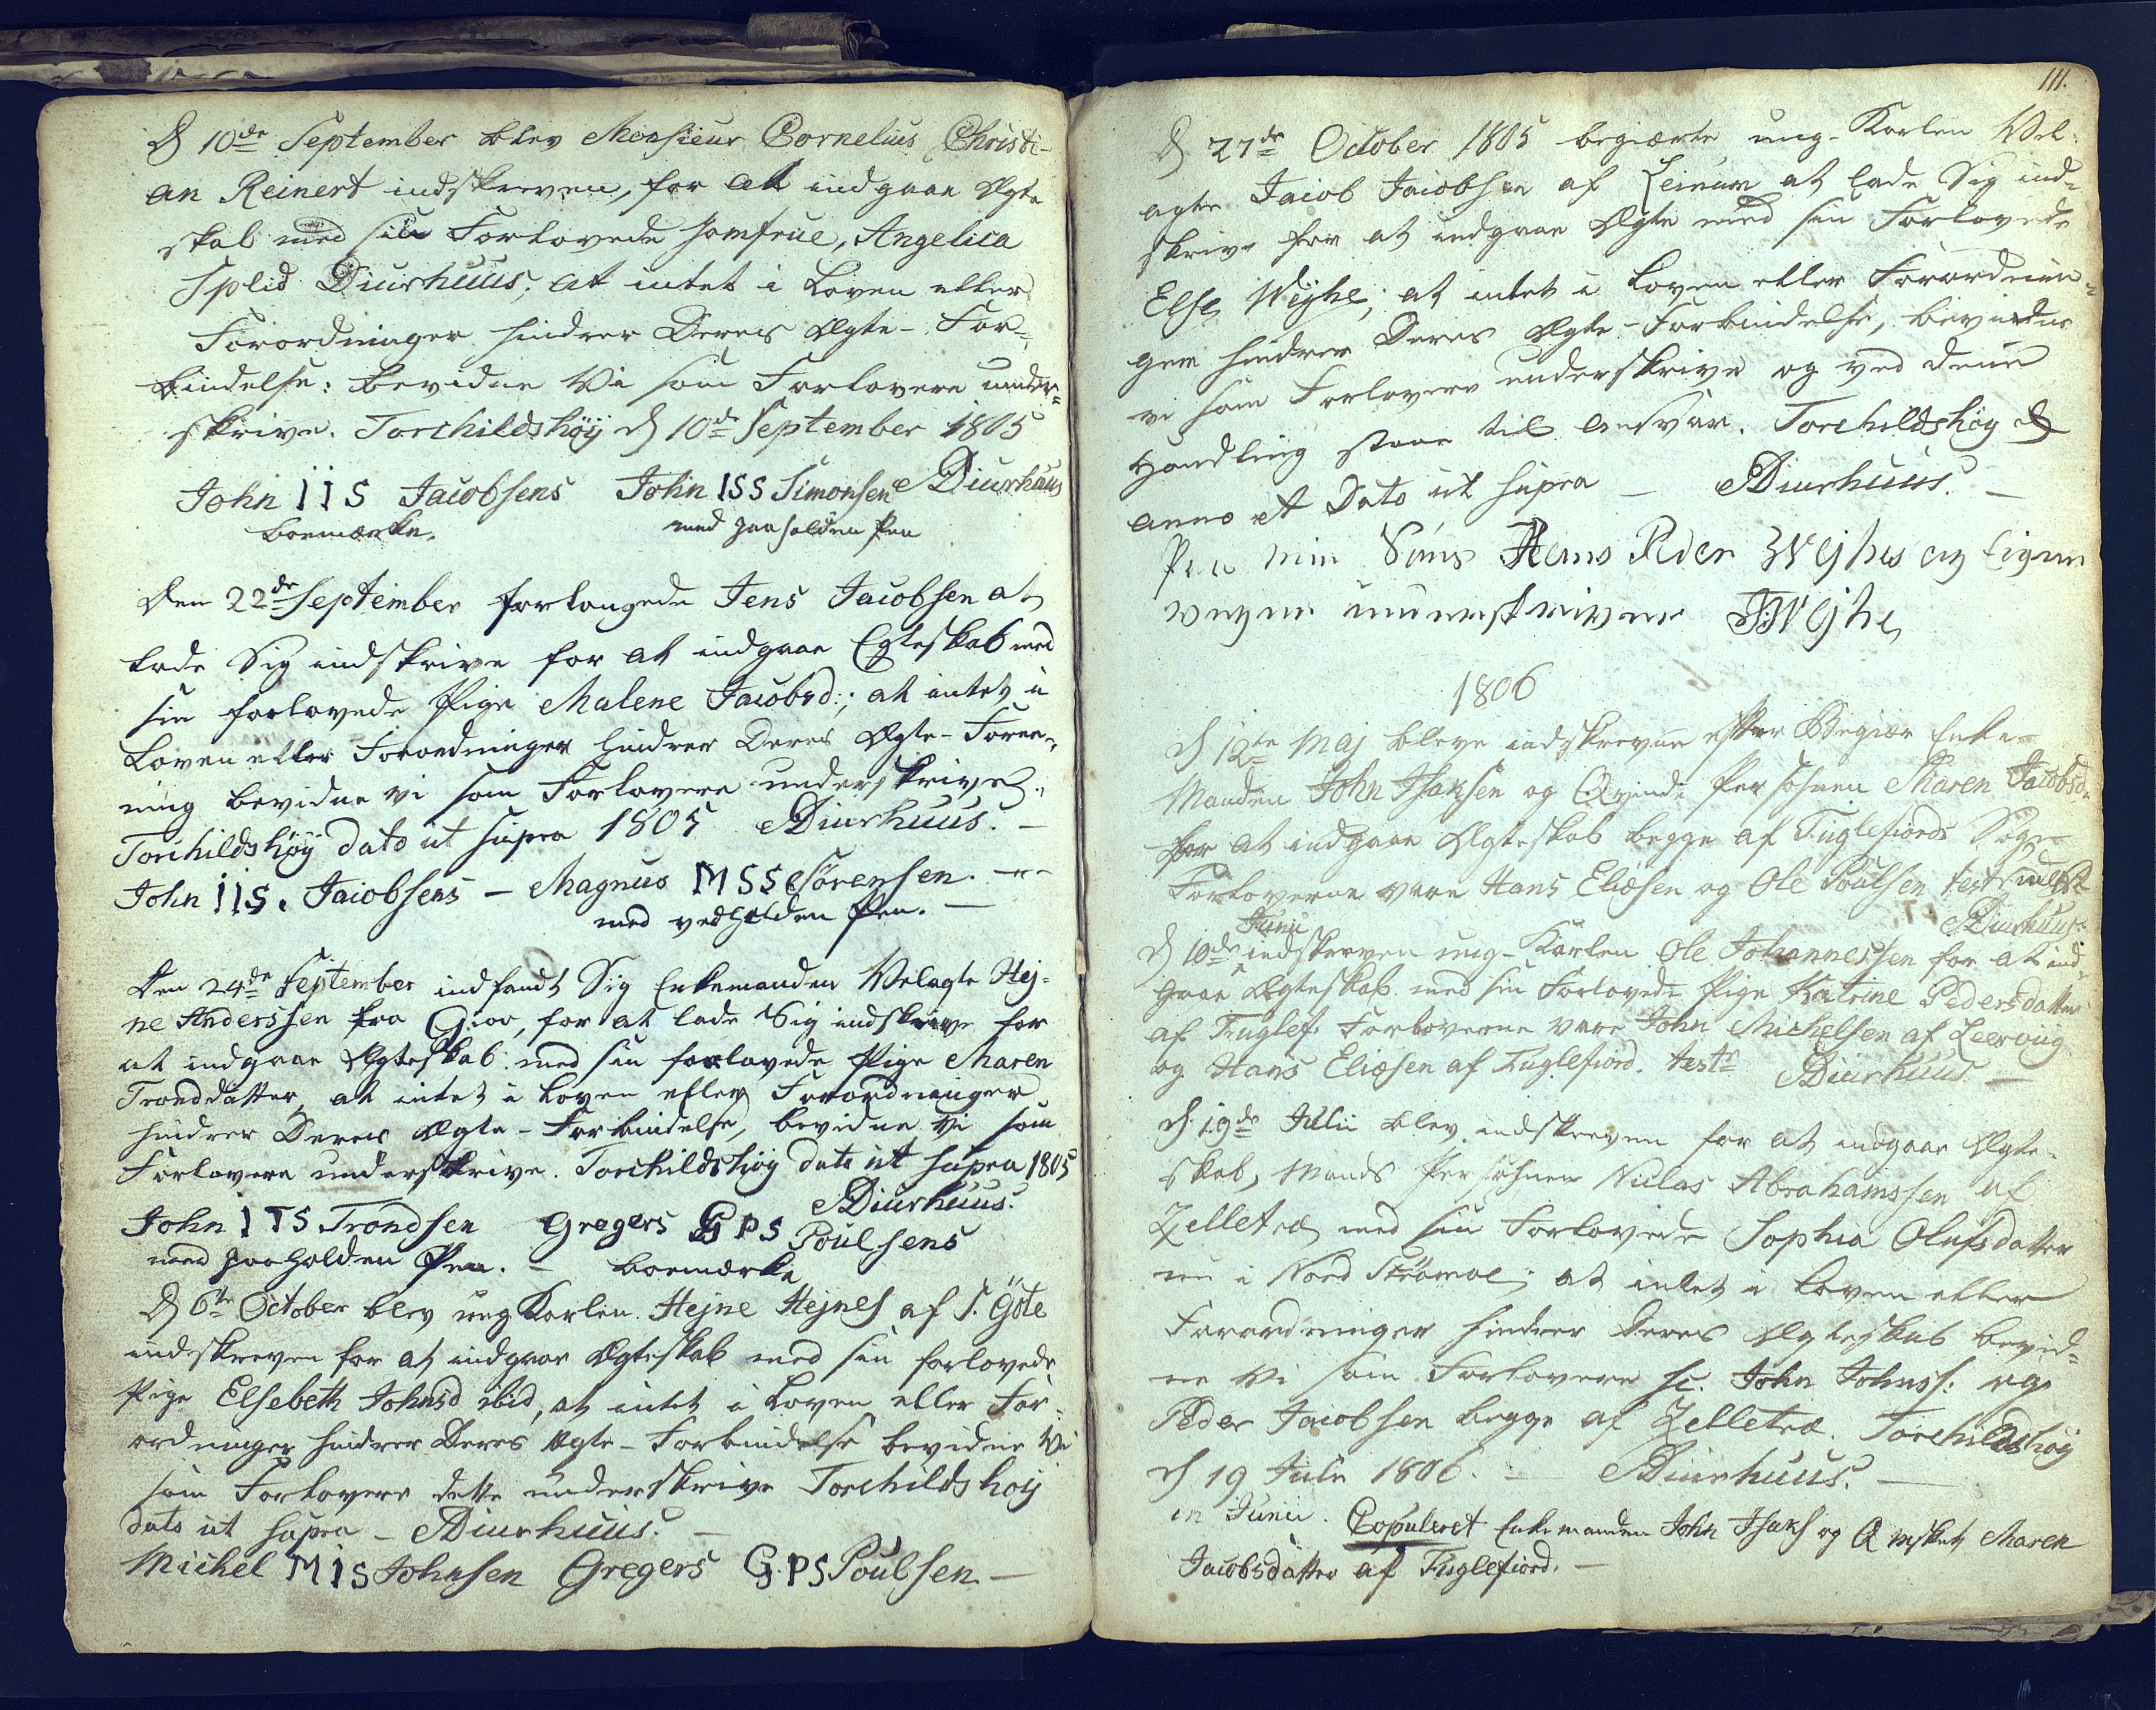 D 10de September blev Monsieur Cornelius Christi-
an Reinert indskreven, for at indgaae Ægte
skab med sin Forlovede Jomfrue, Angelica
Splid Diurhuus; at intet i Loven eller
Forordninger hindrer Deres Ægte-For-
bindelse: bevidne Vi som Forlovere under-
skrive. Torchildshöÿ D 10de September 1805
John IIS Jacobsens John ISS Simonsen Diurhuus
boemærke. med paaholden Pen
Den 22de September forlangede Jens Jacobsen at
lade Sig indskrive for at indgaae Egteskab med
sin forlovede Pige Malene Jacobsd:; at intet i
Loven eller Forordninger hindrer Deres Ægte-Fore-
ning bevidne vi som Forlovere underskrive.
Torchildshöÿ dato ut supra 1805 Diurhuus. -
John IIS. Jacobsens - Magnus MSS Sörensen. -
med vedholden Pen. -
Den 24de September indfandt Sig Enkemanden Velagte Hej-
ne Anderssen fra Giov, for at lade Sig indskrive for
at indgaae Ægteskab med sin forlovede Pige Maren
Tronddatter, at intet i Loven eller Forordninger
hindrer Deres Ægte-Forbindelse, bevidne Vi som
Forlovere underskrive. Torchildshöy dato ut supra 1805
Diurhuus.
John ITS Trondsen Gregers GPS Poulsens
med paaholden Pen. - boemærke
D 6te October blev ung Karlen Hejne Hejnes af S. Göte
indskreven for at indgaae Ægteskab med sin forlovede
Pige Elsebeth Johnsd ibid, at intet i Loven eller For-
ordninger hindrer Deres Ægte-Forbindelse bevidne Vi
som Forlovere dette underskrive Torchildshoÿ
dato ut supra - Diurhuus. -
Michel MIS Johnsen Gregers G.PS Poulsen -
111.
D 27de October 1805 begiærte ung-Karlen Vel-
agte Jacob Jacobsen af Leinum at lade Sig ind-
skrive for at indgaae Ægte med sin Forlovede
Else Weÿhe; at intet i Loven eller Forordnin-
ger hindrer Deres Ægte-Forbindelse, bevidne
vi som Forlovere underskrive og ved denne
Handling staae til Ansvar. Torchildshöy D
anno et Dato ut supra - Diurhuus. -
Paa min Söns Hans Peder Weyhes og Eigne
vegne underskriver Weyhe
1806
D 12te Maj bleve indskrevne efter Begiær Enke-
Manden John Isaksen og Qvinde Persohnen Maren Jacobsd.
for at indgaae Ægteskab begge af Fuglefiords Sogn
Forloverne vare Hans Eliæsen og Ole Poulsen test
Diurhuus.
Junii
D 10de indskreven ung-Karlen Ole Johannessen for at ind-
gaae Ægteskab med sin Forlovede Pige Katrine Pedersdatter
af Fuglef: Forloverne vare John Michelsen af Leervug
og Hans Eliæsen af Fuglefiord. teste Diurhuus -
D. 19de Julii blev indskreven for at indgaae Ægte-
skab, Mands Persohnen Niclas Abrahamssen af
Zelletræ med sin Forlovede Sophia Olufsdatter
nu i Nord Strömoe; at intet i Loven eller
Forordninger hindrer Deres Ægteskab bevid-
ne Vi som Forlovere sc. John Johnss: og
Peder Jacobsen begge af Zelletræ. Torchildshöy
D 19 Julii 1806. - Diurhuus. -
in Junii. Copuleret Enkemanden John Isaks og Maren
Jacobsdatter af Fuglefiord. -